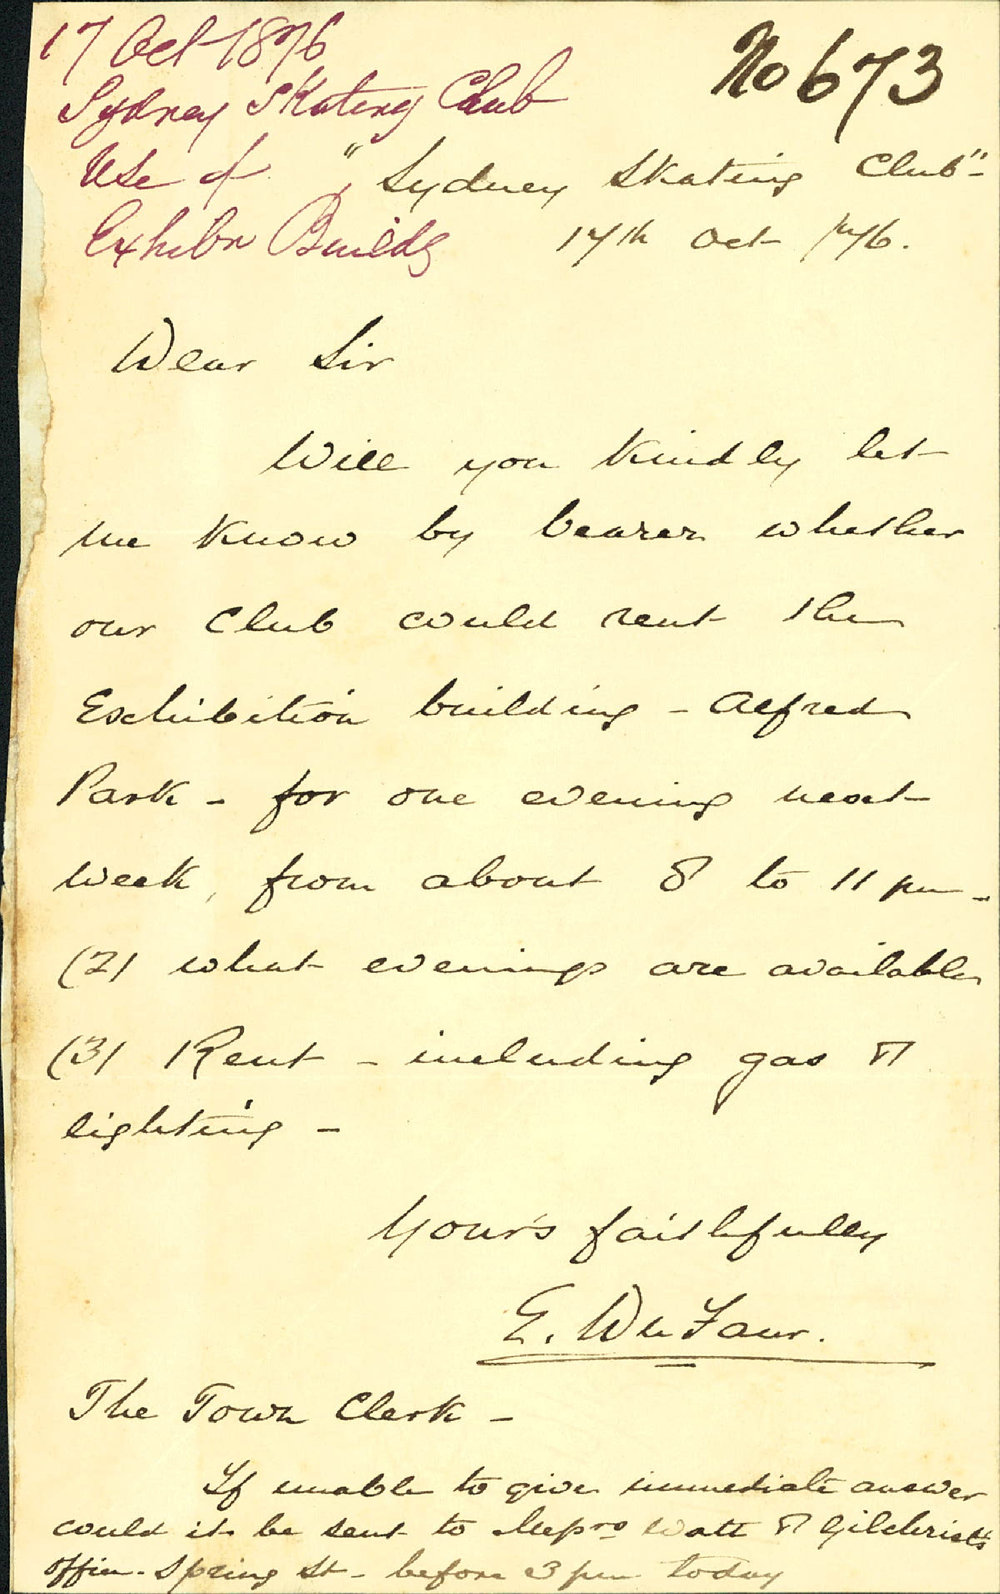 17 Oct 1876
Sydney Skating Club
Use of
Exhibn Buildg
No 673
"Sydney Skating Club"
17th Oct /76.
Dear Sir
Will you kindly let
me know by bearer whether
our Club could rent the
Exhibition building - Alfred
Park - for one evening next
week, from about 8 to 11 pm -
(2) what evenings are available
(3) Rent - including gas &
lighting -
Your's faithfully
E. Du Faur.
The Town Clerk -
If unable to give immediate answer
could it be sent to Messrs Watt & Gilchrist's
office - Spring St - before 3 pm today